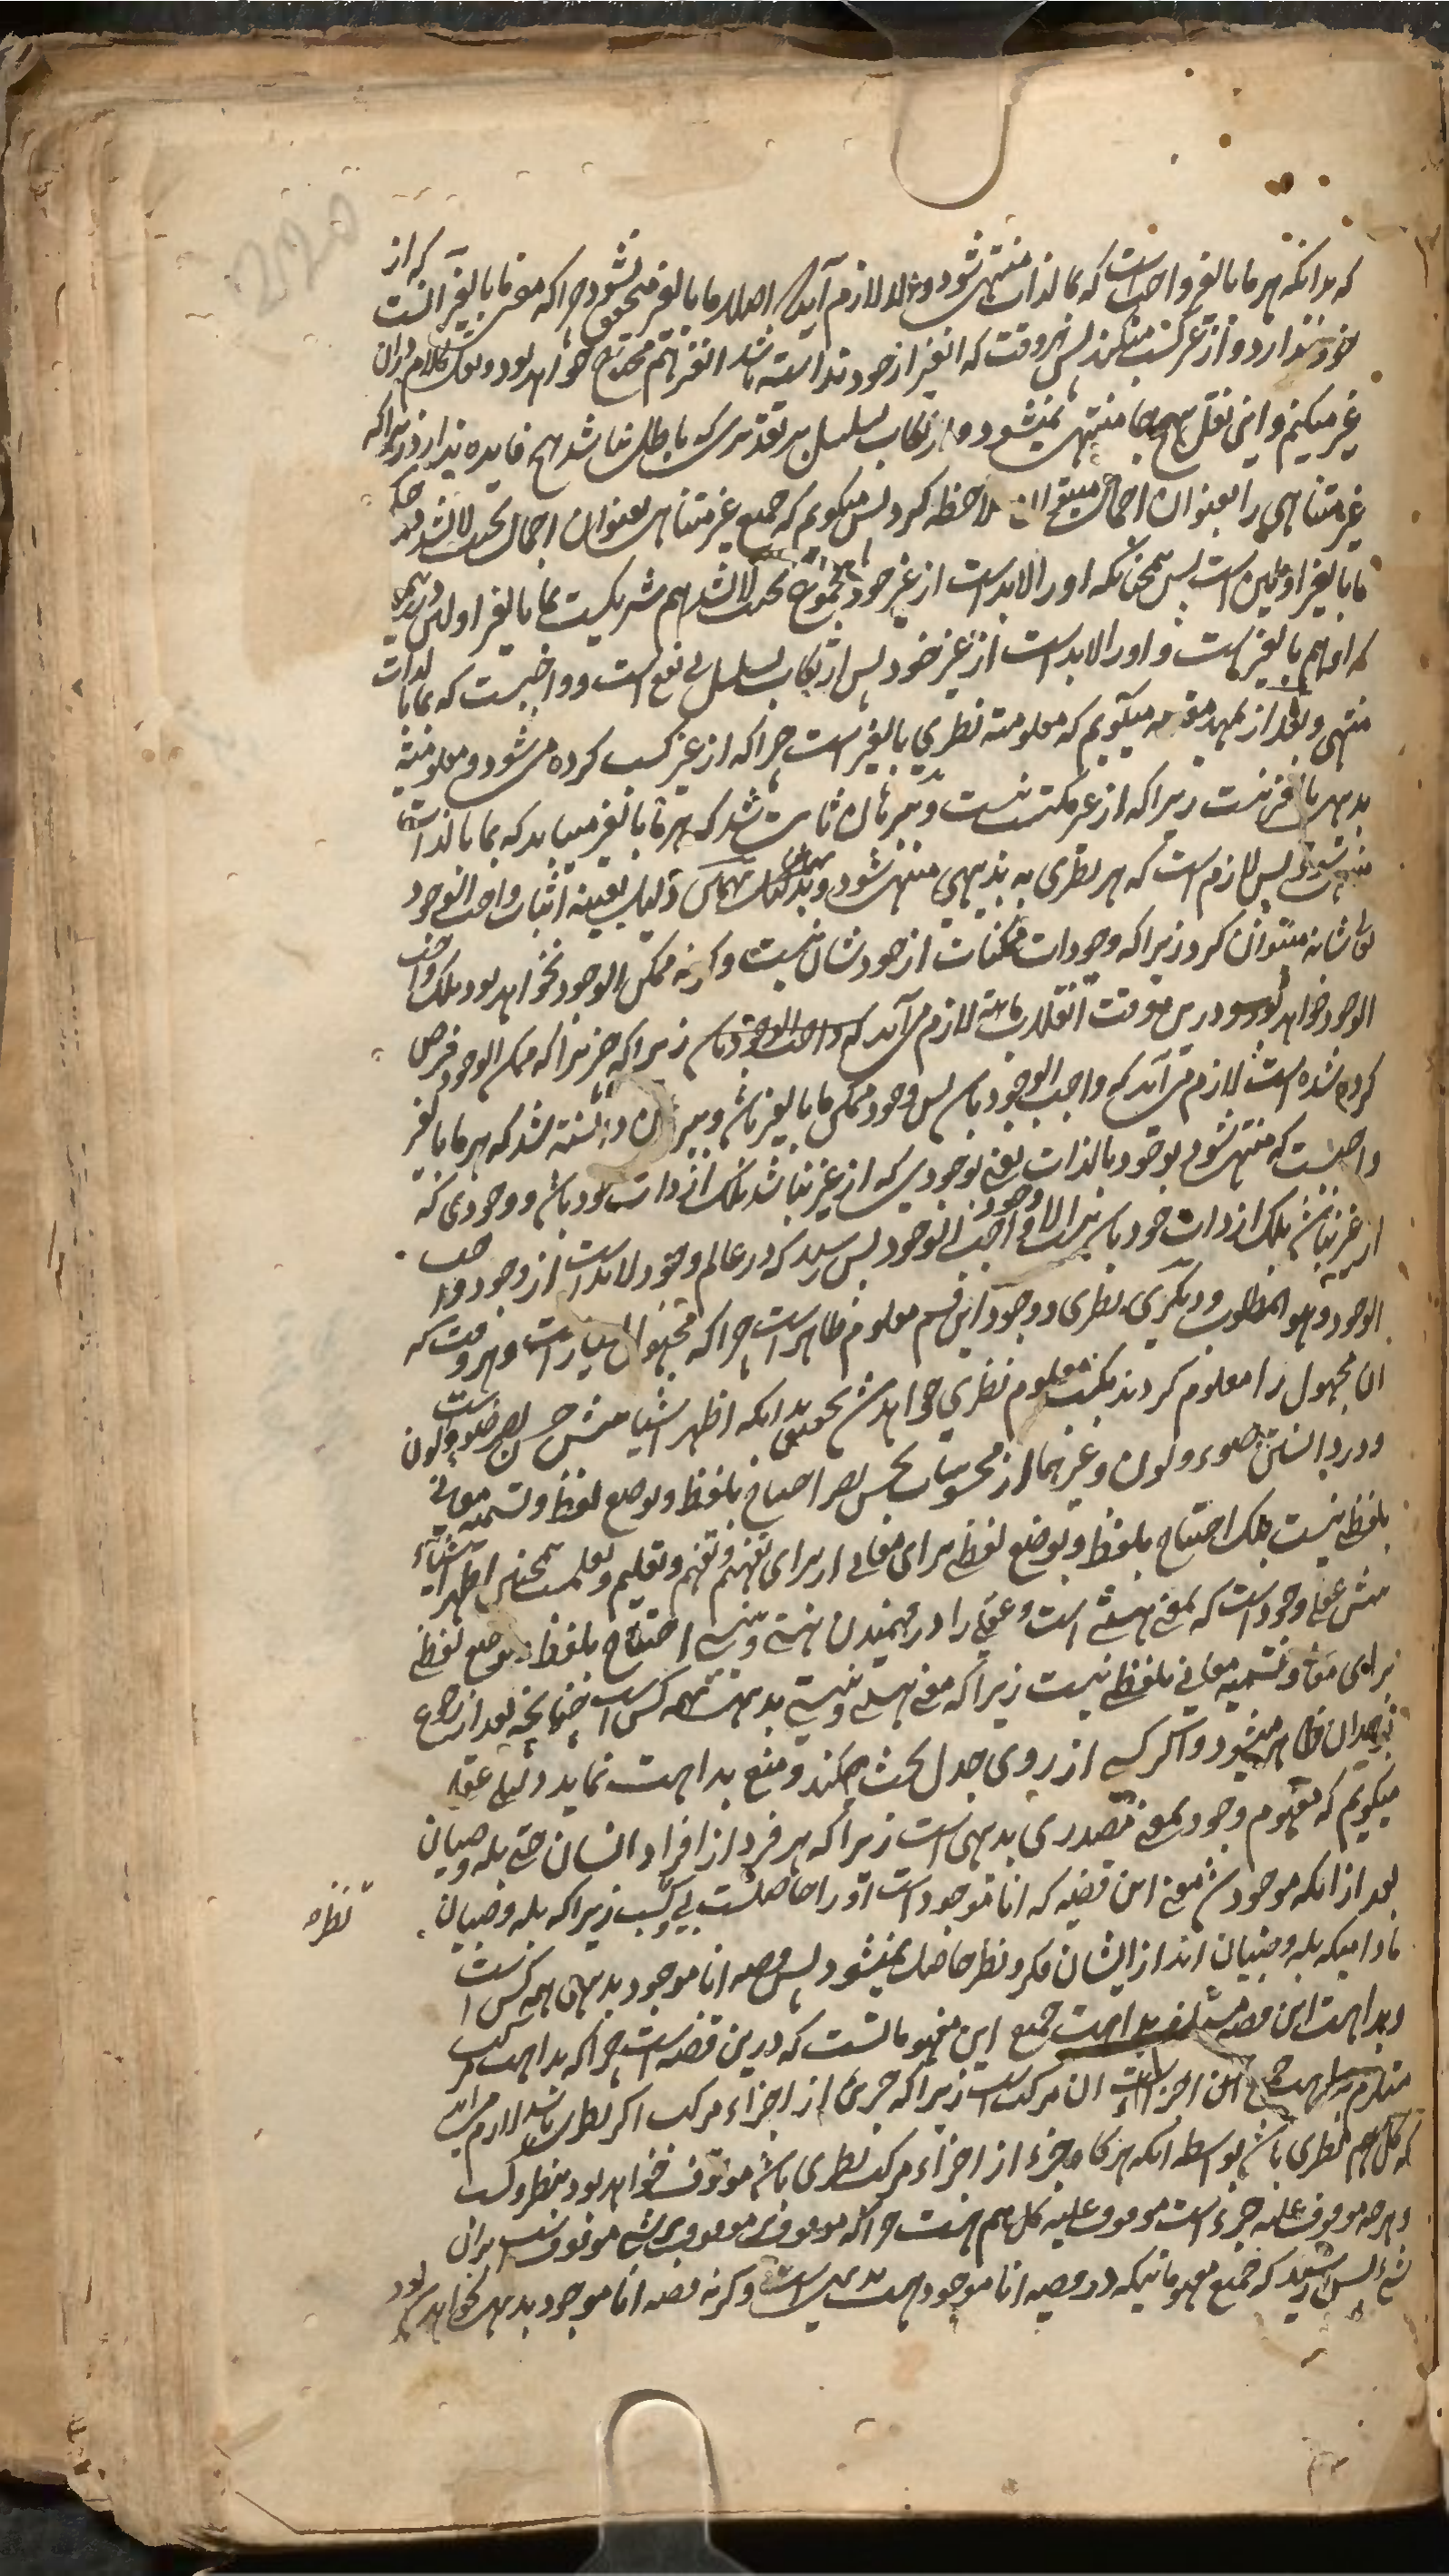 که بدانکه هر ما بالغیر واجبست که بما بالذات منتهی شود و الا لازم آید که اصلا ما بالغیر متحقق نشود چرا که معنی ما بالغیر آنست که از
خود ندارد و از غیر کسب میکند پس هر وقت که آن غیر از خود نداشته باشد آن غیر هم محتاج خواهد بود و نقل کلام در آن
غیر میکنم و این نقل هیچ جا منتهی نمیشود و ارتکاب تسلسل بر تقدیری که باطل نباشد هیچ فایده ندارد زیرا که
غیر متناهی را بعنوان اجمال میتوان ملاحظه کرد پس میکویم که جمیع غیر متناهی بعنوان اجمال بحیث لا یشذ حکم
ما بالغیر اولین است پس همچنانکه او را لابد است از غیر خود مجموع بحیث لا یشذ هم شریکست بما بالغیر اولین در
که او هم بالغیر است و او را لابد است از غیر خود پس ارتکاب تسلسل بی نفع است و واجبست که بما بالذات
منتهی و بعد از تمهید مقدمه میکویم که معلومیة نظری بالغیر است چرا که از غیر کسب کرده میشود و معلومیة
بدیهی بالغیر نیست زیرا که از غیر مکتسب نیست و ببرهان ثابت شد که هر ما بالغیر میباید که بما بالذات
منتهی شود پس لازم است که هر نظری به بدیهی منتهی شود و بهمین دلیل بعینه اثبات واجب الوجود
تعالی شانه میتوان کرد زیرا که وجودات ممکنات از خودشان نیست و کرنه ممکن الوجود نخواهد بود بلکه واجب
الوجود خواهد بود و درین وقت انقلاب ماهیة لازم می‌آید که واجب الوجود باشد زیرا که چیزیرا که ممکن الوجود فرض
کرده شده است لازم می‌آید که واجب الوجود باشد پس وجود ممکن ما بالغیر باشد و ببرهان دانسته شد که هر ما بالغیر
واجبست که منتهی شود بوجود بالذات یعنی بوجودی که از غیر نباشد بلکه از ذات خود باشد و وجودی که
از غیر نباشد بلکه از ذات خود باشد نیست الا وجود واجب الوجود پس رسید که در عالم وجود لابد است از وجود واجب
الوجود و هو المطلوب و دیکری نظری و وجود این قسم معلوم ظاهر است چرا که مجهول بسیار است و هر وقت که
آن مجهول را معلوم کردند بکسب معلوم نظری خواهد شد تحقیق بدانکه اظهر اشیا پیش حس بصر ضوء و لون است
و در دانستن ضوء و لون و غیرهما از محسوسات بحس بصر احتیاج بلفظ و بوضع لفظ و تسمیه معانی
بلفظ نیست بلکه احتیاج بلفظ و بوضع لفظ برای معانی از برای تفهیم و تفهم و تعلیم و تعلمست همچنین اظهر اشیاء
پیش عقل وجود است که بمعنی هستی است و عقل را در فهمیدن هستی و نیستی احتیاج بلفظ و بوضع لفظ
برای معنی و تسمیه معانی بلفظ نیست زیرا که معنی هستی و نیستی بدیهی همه کس است چنانچه بعد از رجوع
بوجدان ظاهر میشود و اکر کسی از روی جدل بحث کند و منع بداهت نماید دلیل عقلی
میکویم که مفهوم وجود بمعنی مصدری بدیهی است زیرا که هر فرد از افراد انسان حتی بله و صبیان
بعد از آنکه موجود شد معنی این قضیه که انا موجود است او را حاصلست بی کسب زیرا که بله و صبیان
مادامیکه بله و صبیان اند از ایشان فکر و نظر حاصل نمیشود پس قضیه انا موجود بدیهی همه کس است
و بداهت این قضیه جمیع این مفهوماتست که درین قضیه است چرا که بداهت مرکب
مستلزم بداهت جمیع اجزاء آن مرکب است زیرا که جزئ از اجزاء مرکب اکر نظری باشد لازم می‌آید
که کل هم نظری باشد بواسطه آنکه هر کاه جزء از اجزاء مرکب نظری باشد موقوف خواهد بود بنظر و کسب
و هر چه موقوف علیه جزء است موقوف علیه کل هم هست چرا که موقوف بر موقوف بر شئ موقوف است بر آن
شئ پس رسید که جمیع مفهوماتیکه در قضیه انا موجود هست بدیهیست و کرنه قضیه انا موجود بدیهی نخواهد بود